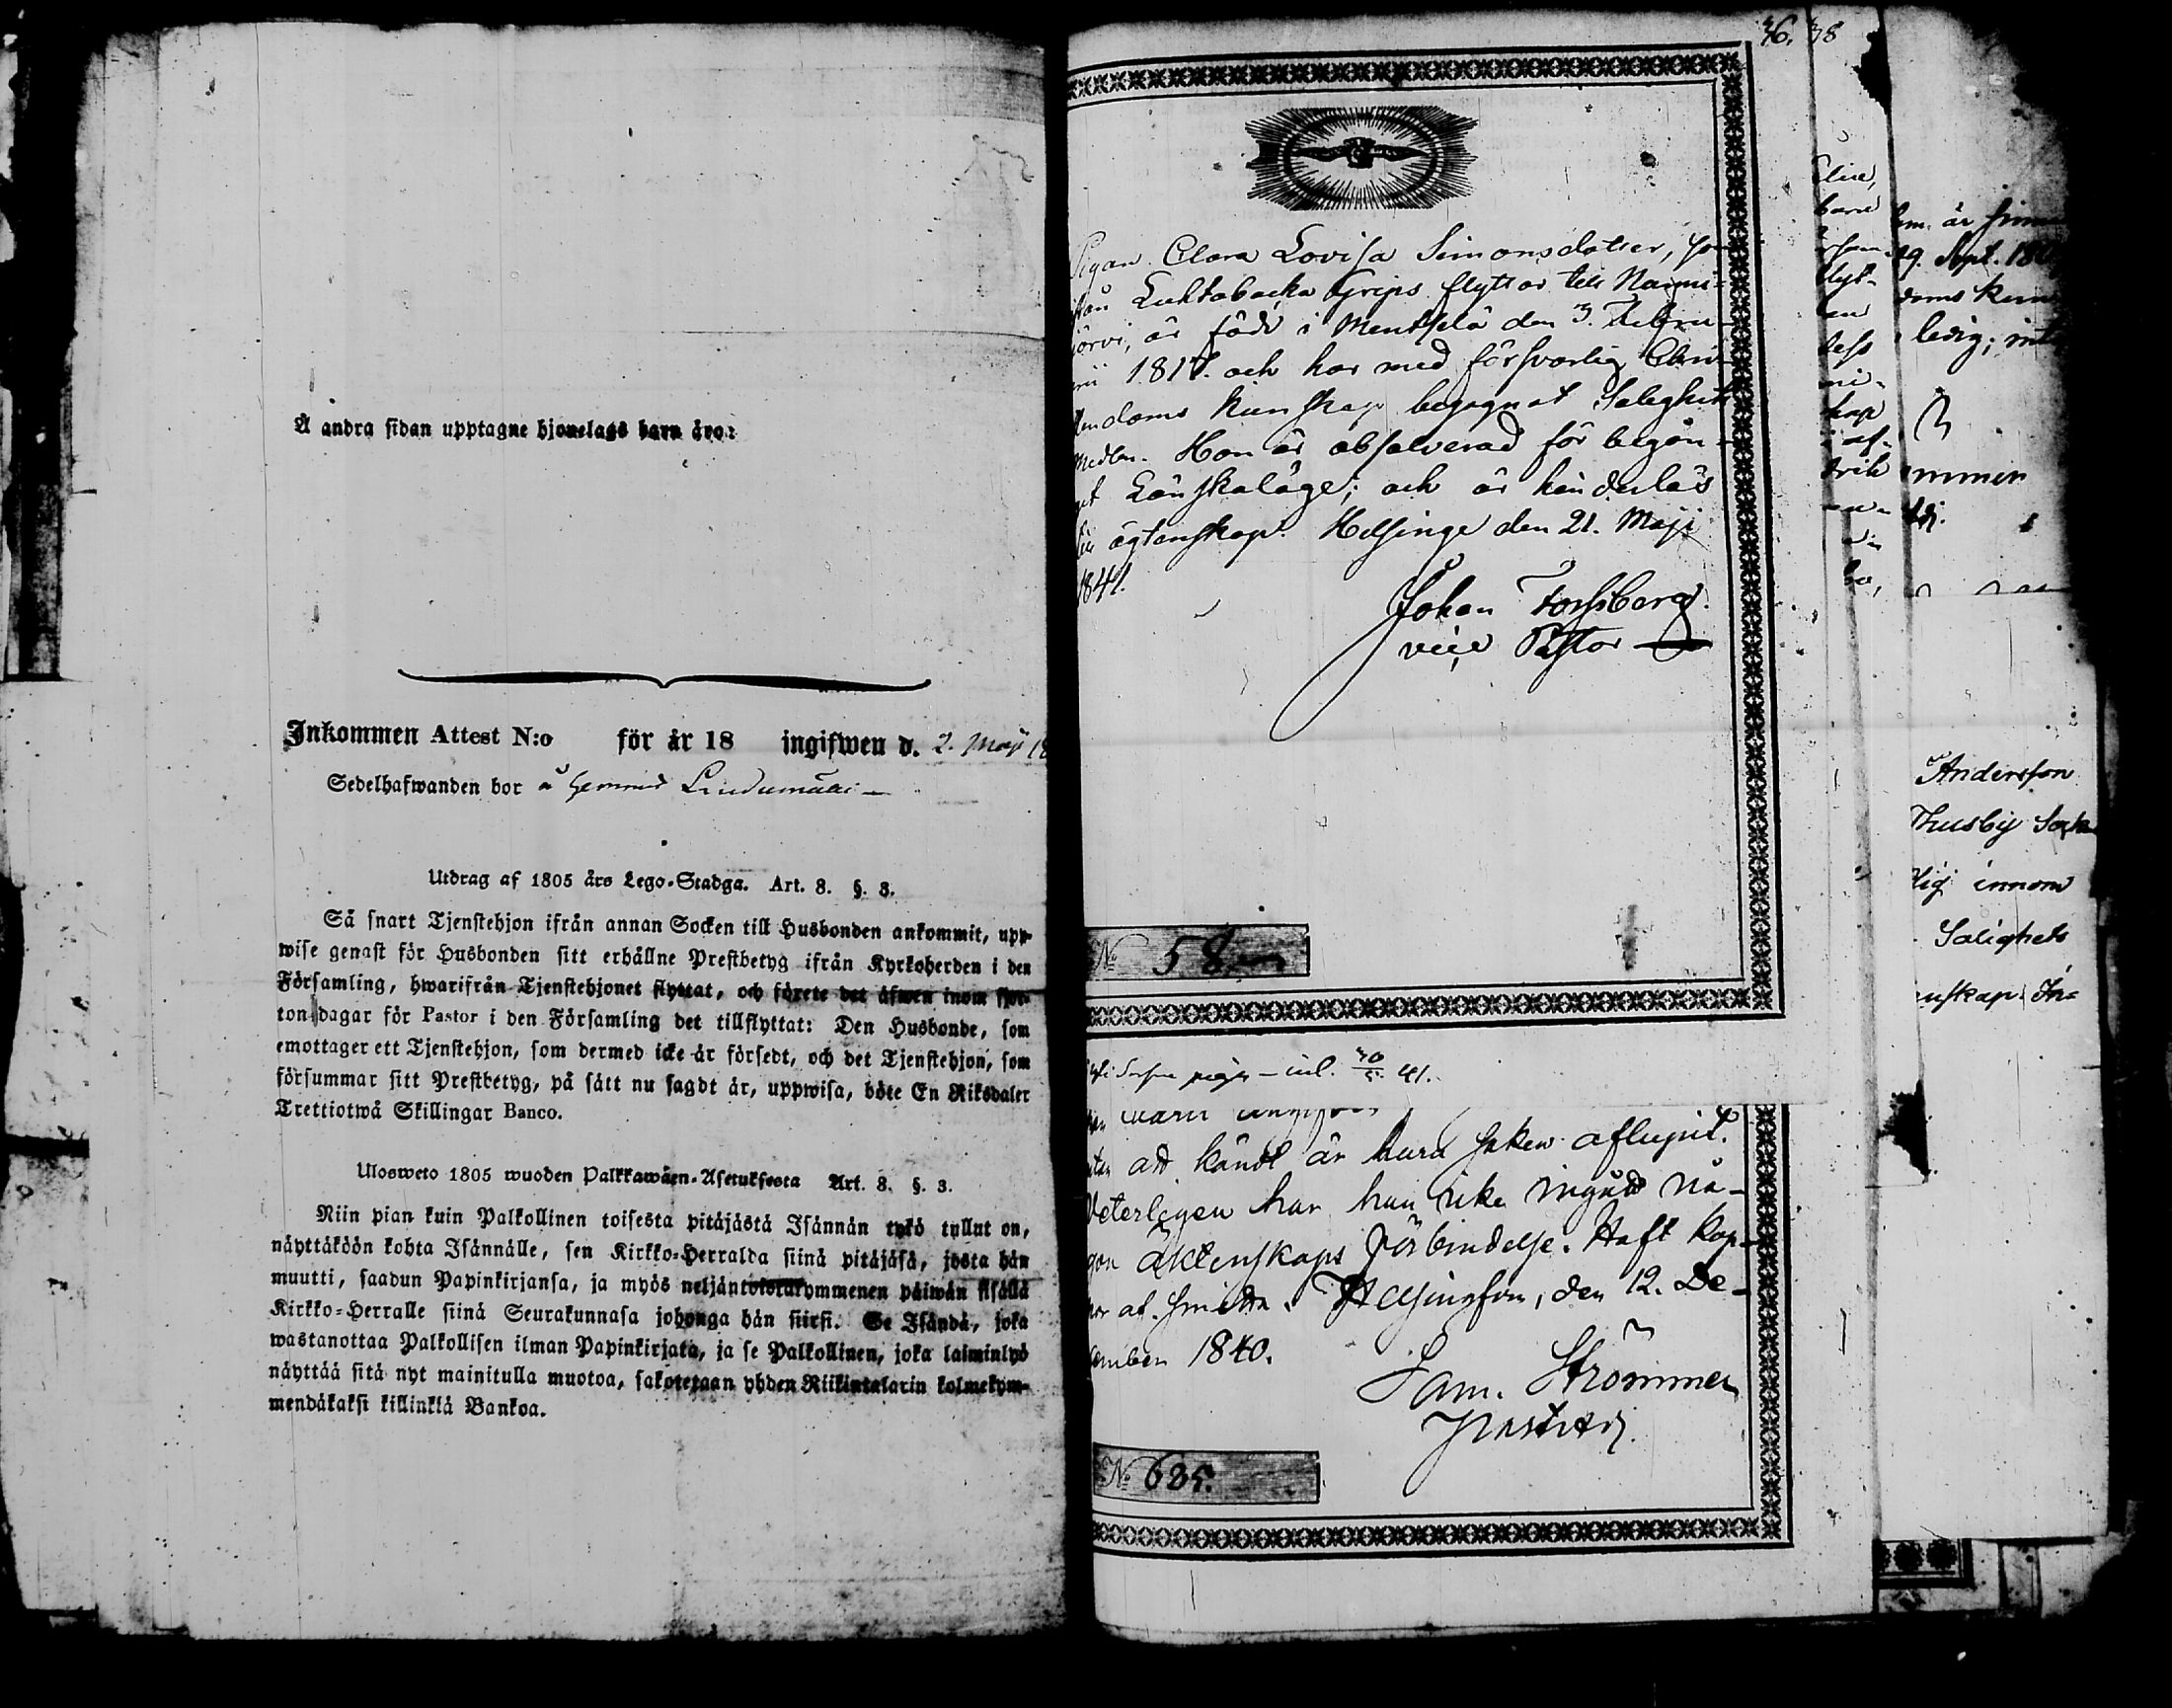 Å andra sidan upptagne hjonelags barn äro:
Inkommen Attest N:o för år 18 ingifwen d. 2. Maji 18
Sedelhafwanden bor å hemmid
Utdrag af 1805 års Lego-Stadga. Art. 8. §. 3.
Så snart Tjenstehjon ifrån annan Socken till Husbonden ankommit, upp-
wise genast för Husbonden sitt erhållne Prestbetyg ifrån Kyrkoherden i den
Församling, hwarifrån Tjenstehjonet flyttat, och förete det äfwen inom fjor-
ton dagar för Pastor i den Församling det tillflyttat: Den Husbonde, som
emottager ett Tjenstehjon, som dermed icke är försedt, och det Tjenstehjon, som
försummar sitt Prestbetyg, på sätt nu sagdt är, uppwisa, böte En Riksdaler
Trettiotwå Skillingar Banco.
Ulosweto 1805 wuoden Palkkawäen-Asetuksesta Art. 8. §. 3.
Niin pian kuin Palkollinen toisesta pitäjästä Isännän tykö tullut on,
näyttäköön kohta Isännälle, sen Kirkko-Herralda siinä pitäjäsä, josta hän
muutti, saadun Papinkirjansa, ja myös neljäntoistakymmenen päiwän sisällä
Kirkko-Herralle siinä Seurakunnasa johonga hän siirsi. Se Isändä, joka
wastanottaa Palkollisen ilman Papinkirjata, ja se Palkollinen, joka laiminlyö
näyttää sitä nyt mainitulla muotoa, sakotetaan yhden Riikintalarin kolmekym-
mendäkaksi killinkiä Bankoa.
36. 38
Pigan Clara Lovisa Simonsdotter, som
från Luktabacka Grips flyttar till Nurmi-
järvi, är född i Mentselä den 3. Febru-
arii 1817. och har med försvarlig Chri-
stendoms kunskap begagnat Salighets
medlen. Hon är absolverad för begån-
get Lönskaläge; och är hinderlös
till ägtenskap. Helsinge den 21. Maji
1841.
Johan Forssberg.
vice Pastor
No 58
inl. 30/5. 41.
utan att kändt är huru saken aflupit.
Veterligen har hun icke ingått nå-
gon äktenskaps förbindelse. Haft kop-
por af smitta. Helsingfors, den 12. De-
cember 1840.
Sam. Strömmer
Past: Adj.
No 685.
29. Sept. 180
ledig; int
mmer
dj.
Andersson
Thusby Sock
lig innom
Salighets
nskap. In-